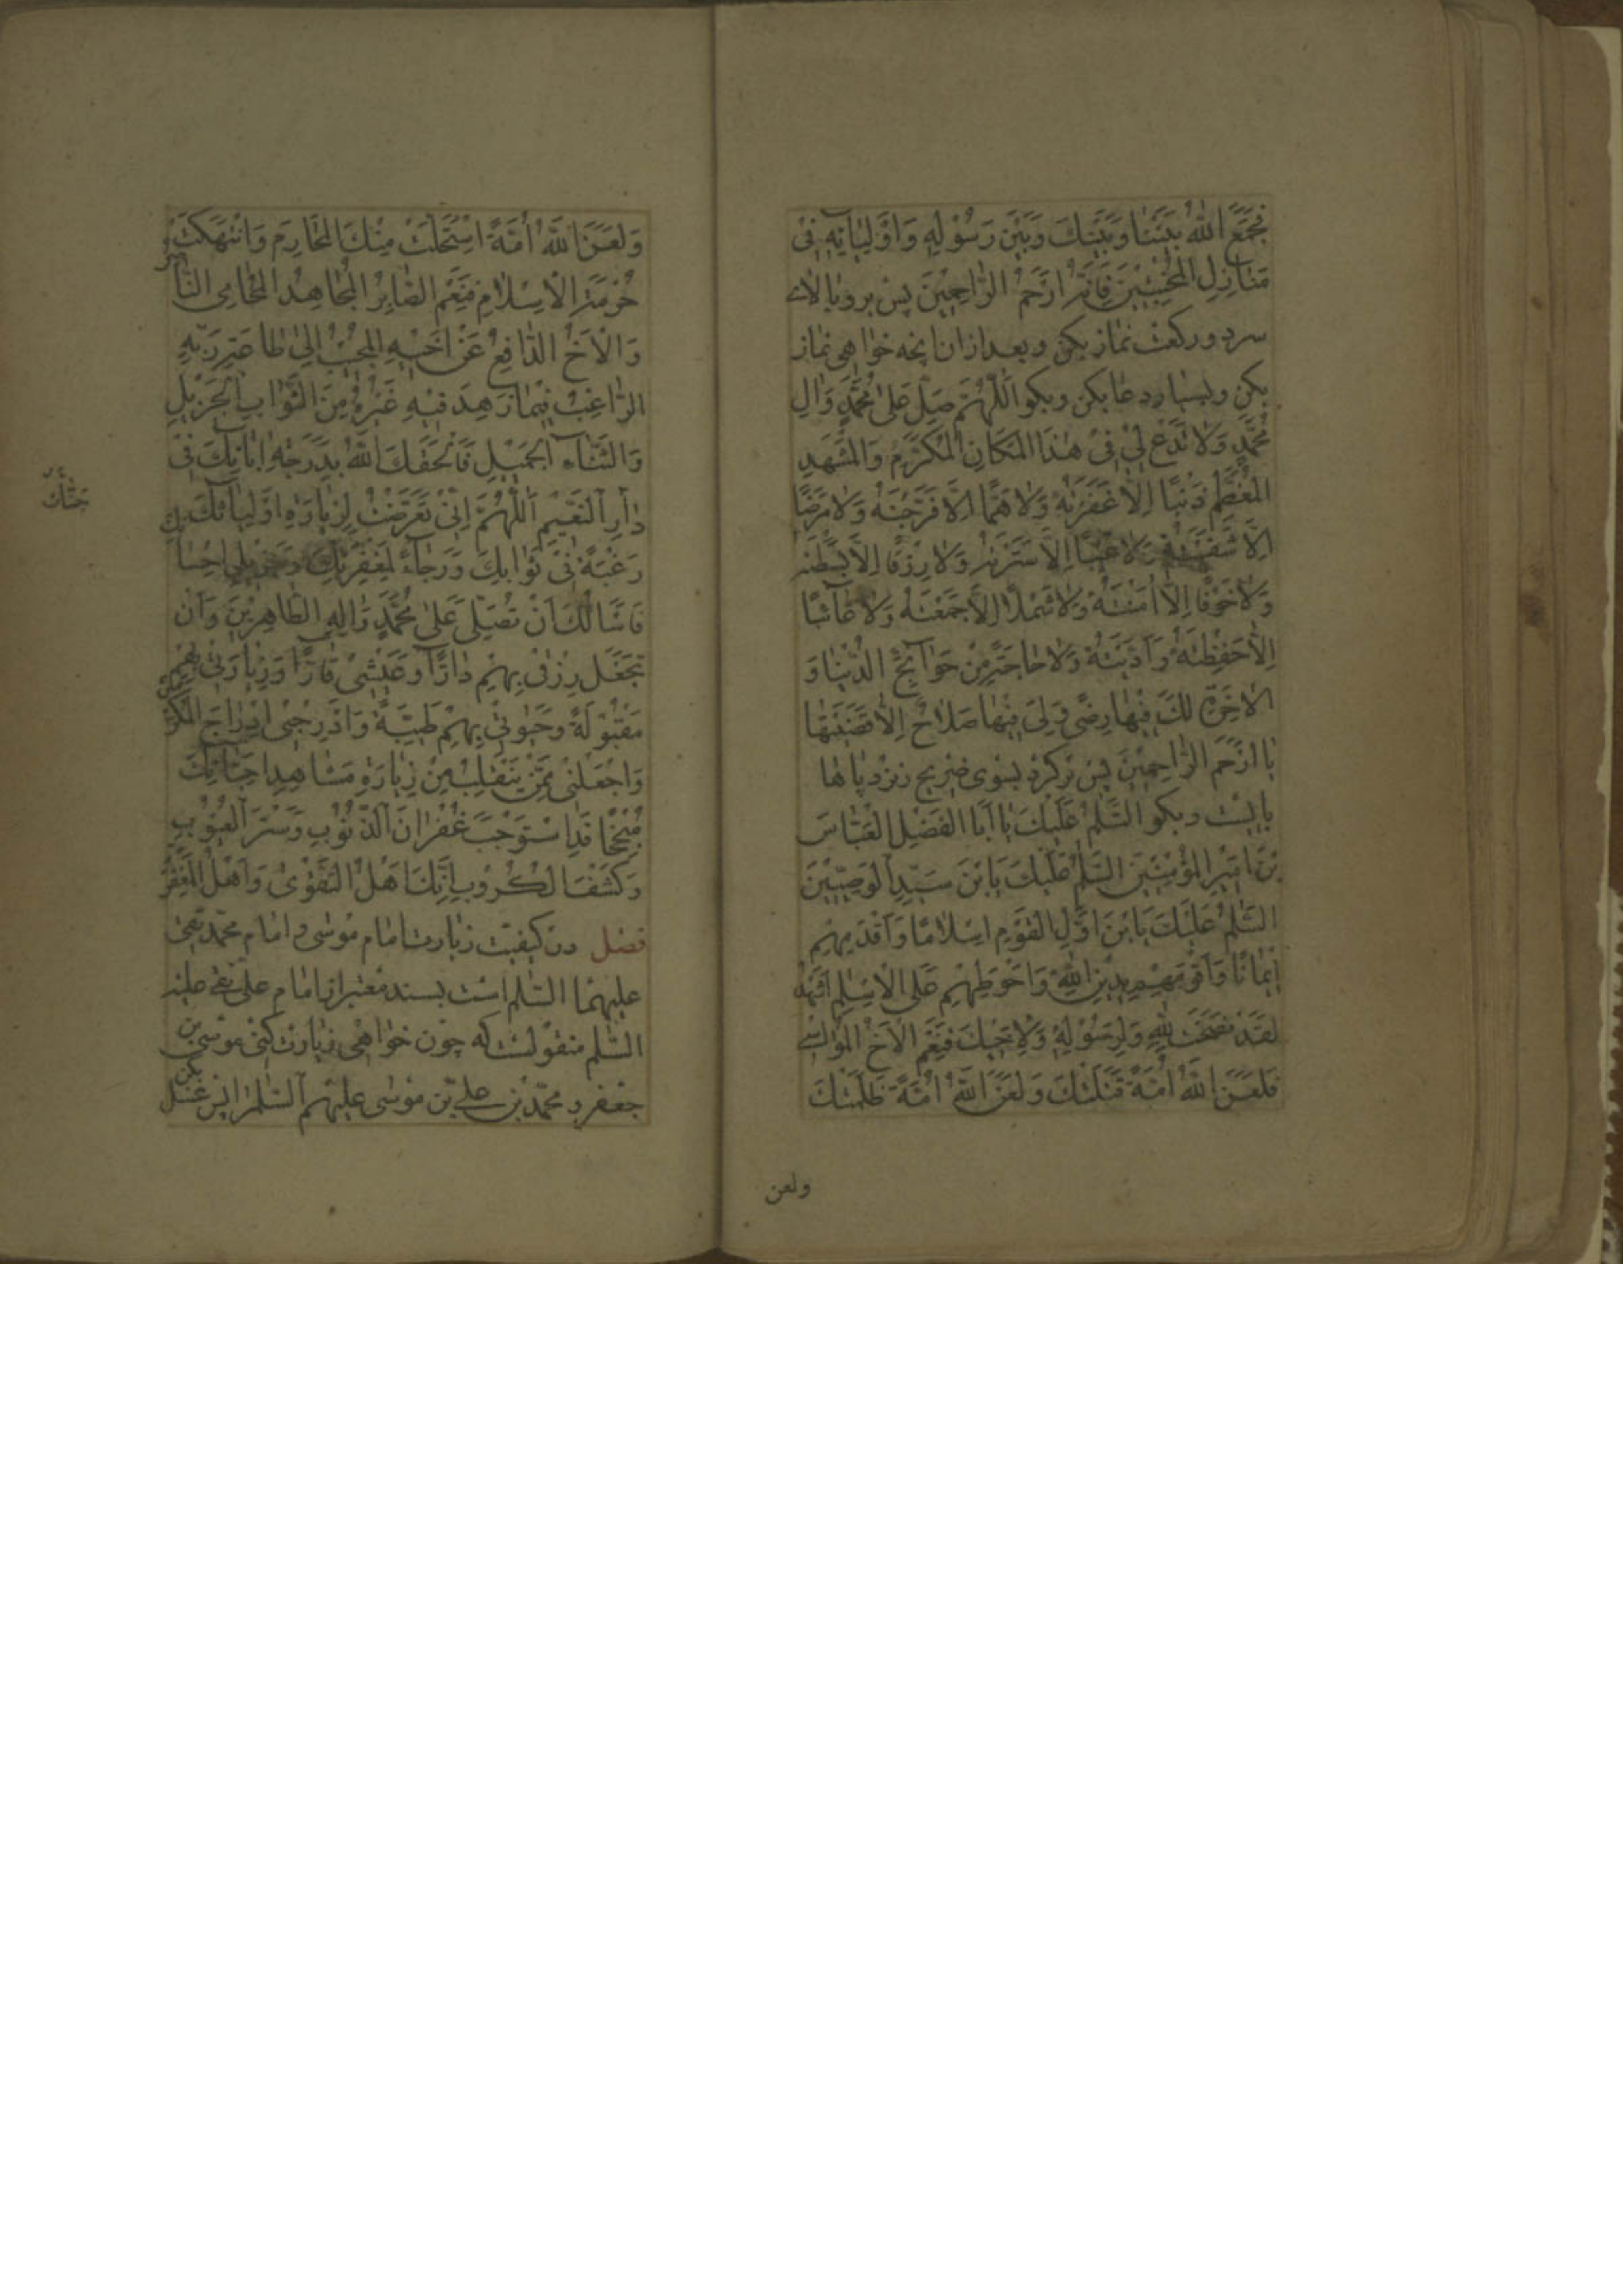 فَجَمَعَ اللهُ بَيْنَنَا وَبَيْنَكَ وَبَيْنَ رَسُوْلِهِ وَاَوْلِيَائِهِ فِيْ
مَنَازِلِ الْمُخْبِتِيْنَ فَاِنَّهُ اَرْحَمُ الرَّاحِمِيْنَ پس برو ببالای
سر و دو ركعت نماز بكن و بعد ازان انچه خواهى نماز
بكن و بسيار دعا بكن و بكو اَللّٰهُمَّ صَلِّ عَلٰى مُحَمَّدٍ وَاٰلِ
مُحَمَّدٍ وَلَا تَدَعْ لِيْ فِيْ هٰذَا الْمَكَانِ الْمُكَرَّمِ وَالْمَشْهَدِ
الْمُعَظَّمِ ذَنْبًا اِلَّا غَفَرْتَهُ وَلَا هَمًّا اِلَّا فَرَّجْتَهُ وَلَا مَرَضًا
اِلَّا شَفَيْتَهُ وَلَا عَيْبًا اِلَّا سَتَرْتَهُ وَلَا رِزْقًا اِلَّا بَسَطْتَهُ
وَلَا خَوْفًا اِلَّا اٰمَنْتَهُ وَلَا شَمْلًا اِلَّا جَمَعْتَهُ وَلَا غَائِبًا
اِلَّا حَفِظْتَهُ وَاَدْنَيْتَهُ وَلَا حَاجَةً مِنْ حَوَائِجِ الدُّنْيَا وَ
الْاٰخِرَةِ لَكَ فِيْهَا رِضًى وَلِيَ فِيْهَا صَلَاحٌ اِلَّا قَضَيْتَهَا
يَا اَرْحَمَ الرَّاحِمِيْنَ پس بركرد بسوى ضريح و نزد پاها
بايست و بكو السَّلٰمُ عَلَيْكَ يَا اَبَا الْفَضْلِ الْعَبَّاسَ
بْنَ اَمِيْرِ الْمُؤْمِنِيْنَ السَّلٰمُ عَلَيْكَ يَا بْنَ سَيِّدِ الْوَصِيِّيْنَ
السَّلٰمُ عَلَيْكَ يَا بْنَ اَوَّلِ الْقَوْمِ اِسْلَامًا وَاَقْدَمِهِمْ
اِيْمَانًا وَاَقْوَمِهِمْ بِدِيْنِ اللهِ وَاَحْوَطِهِمْ عَلَى الْاِسْلٰمِ اَشْهَدُ
لَقَدْ نَصَحْتَ لِلّٰهِ وَلِرَسُوْلِهِ وَلِاَخِيْكَ فَنِعْمَ الْاَخُ الْمُوَاسِيْ
فَلَعَنَ اللهُ اُمَّةً قَتَلَتْكَ وَلَعَنَ اللهُ اُمَّةً ظَلَمَتْكَ
ولعن
وَلَعَنَ اللهُ اُمَّةً اسْتَحَلَّتْ مِنْكَ الْمَحَارِمَ وَانْتَهَكَتْ
حُرْمَةَ الْاِسْلَامِ فَنِعْمَ الصَّابِرُ الْمُجَاهِدُ الْمُحَامِي النَّاصِرُ
وَالْاَخُ الدَّافِعُ عَنْ اَخِيْهِ الْمُجِيْبُ اِلٰى طَاعَةِ رَبِّهِ
الرَّاغِبُ فِيْمَا زَهِدَ فِيْهِ غَيْرُهُ مِنَ الثَّوَابِ الْجَزِيْلِ
وَالثَّنَاءِ الْجَمِيْلِ فَاَلْحَقَكَ اللهُ بِدَرَجَةِ اٰبَائِكَ فِيْ
دَارِ النَّعِيْمِ اَللّٰهُمَّ اِنِّيْ تَعَرَّضْتُ لِزِيَارَةِ اَوْلِيَائِكَ
رَغْبَةً فِيْ ثَوَابِكَ وَرَجَاءً لِمَغْفِرَتِكَ وَجَزِيْلِ اِحْسَانِكَ
فَاَسْاَلُكَ اَنْ تُصَلِّيَ عَلٰى مُحَمَّدٍ وَاٰلِهِ الطَّاهِرِيْنَ وَاَنْ
تَجْعَلَ رِزْقِيْ بِهِمْ دَارًّا وَعَيْشِيْ قَارًّا وَزِيَارَتِيْ بِهِمْ
مَقْبُوْلَةً وَحَيٰوتِيْ بِهِمْ طَيِّبَةً وَاَدْرِجْنِيْ اِدْرَاجَ الْمُكْرَمِيْنَ
وَاجْعَلْنِيْ مِمَّنْ يَنْقَلِبُ مِنْ زِيَارَةِ مَشَاهِدِ اَحِبَّائِكَ
مُنْجِحًا قَدِ اسْتَوْجَبَ غُفْرَانَ الذُّنُوْبِ وَسَتْرَ الْعُيُوْبِ
وَكَشْفَ الْكُرُوْبِ اِنَّكَ اَهْلُ التَّقْوٰى وَاَهْلُ الْمَغْفِرَةِ
فصل در كيفيت زيارت امام موسى و امام محمد تقى
عليهما السلم است بسند معتبر از امام على نقى عليه
السلم منقولست كه چون خواهى زيارت كنى موسى بن
جعفر و محمد بن على بن موسى عليهم السلم را پس غسل بكن